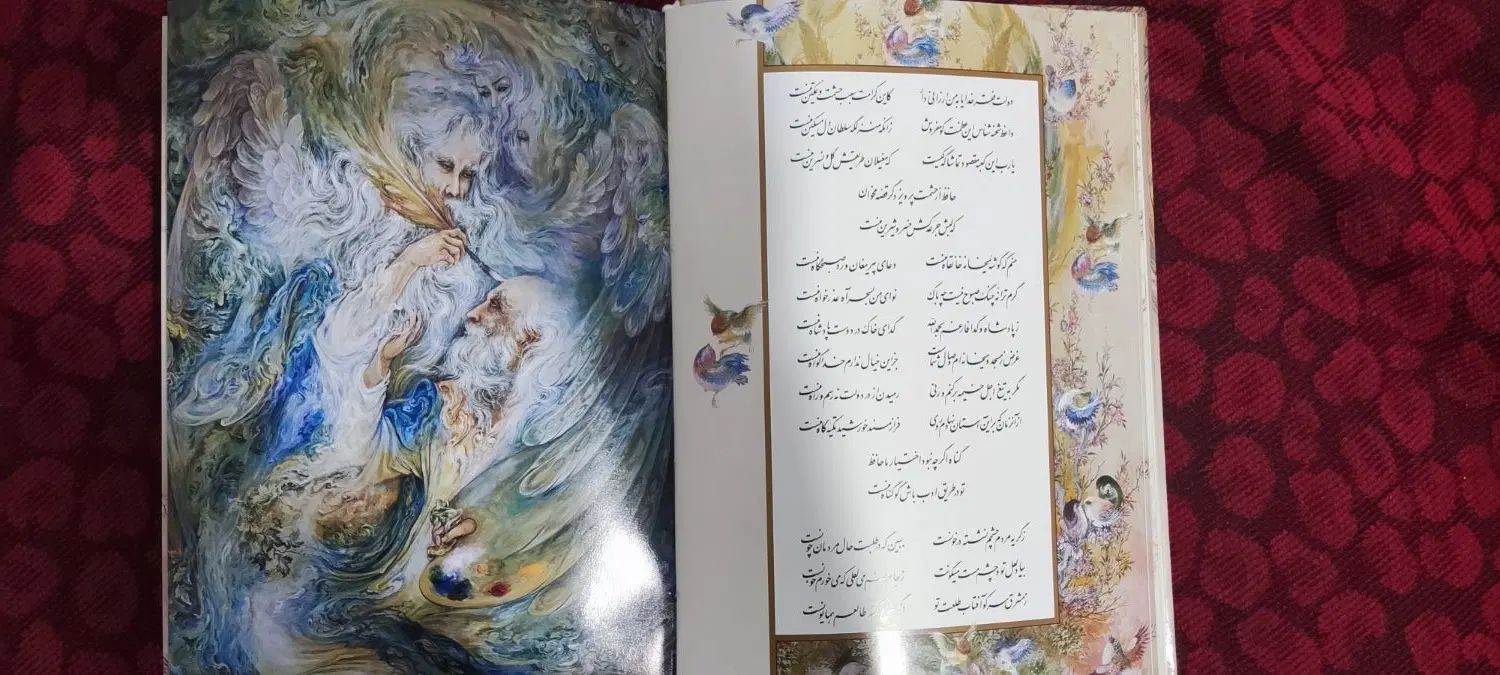 دولت فقر خدایا به من ارزانی دار کاین کرامت سبب حشمت و تمکین منست
واعظ شحنه شناس این عظمت گو مفروش زانکه منزلگه سلطان دل مسکین منست
یارب این کعبه مقصود تماشاگه کیست که مغیلان طریقش گل و نسرین منست
حافظ از حشمت پرویز دگر قصه مخوان
که لبش جرعه کش خسرو شیرین منست
منم که گوشه میخانه خانقاه منست دعای پیر مغان ورد صبحگاه منست
گرم ترانه چنگ صبوح نیست چه باک نوای من بسحر آه عذر خواه منست
ز پادشاه و گدا فارغم بحمدالله گدای خاک در دوست پادشاه منست
غرض ز مسجد و میخانه‌ام وصال شماست جز این خیال ندارم خدا گواه منست
مگر به تیغ اجل خیمه برکنم ورنی رمیدن از در دولت نه رسم و راه منست
از آن زمان که برین آستان نهادم روی فراز مسند خورشید تکیه گاه منست
گناه اگرچه نبود اختیار ما حافظ
تو در طریق ادب باش گو گناه منست
ز گریه مردم چشمم نشسته در خونست ببین که در طلبت حال مردمان چونست
بیاد لعل تو و چشم مست میگونت ز جام غم می لعلی که می خورم خونست
ز مشرق سر کو آفتاب طلعت تو اگر طالعم همایونست